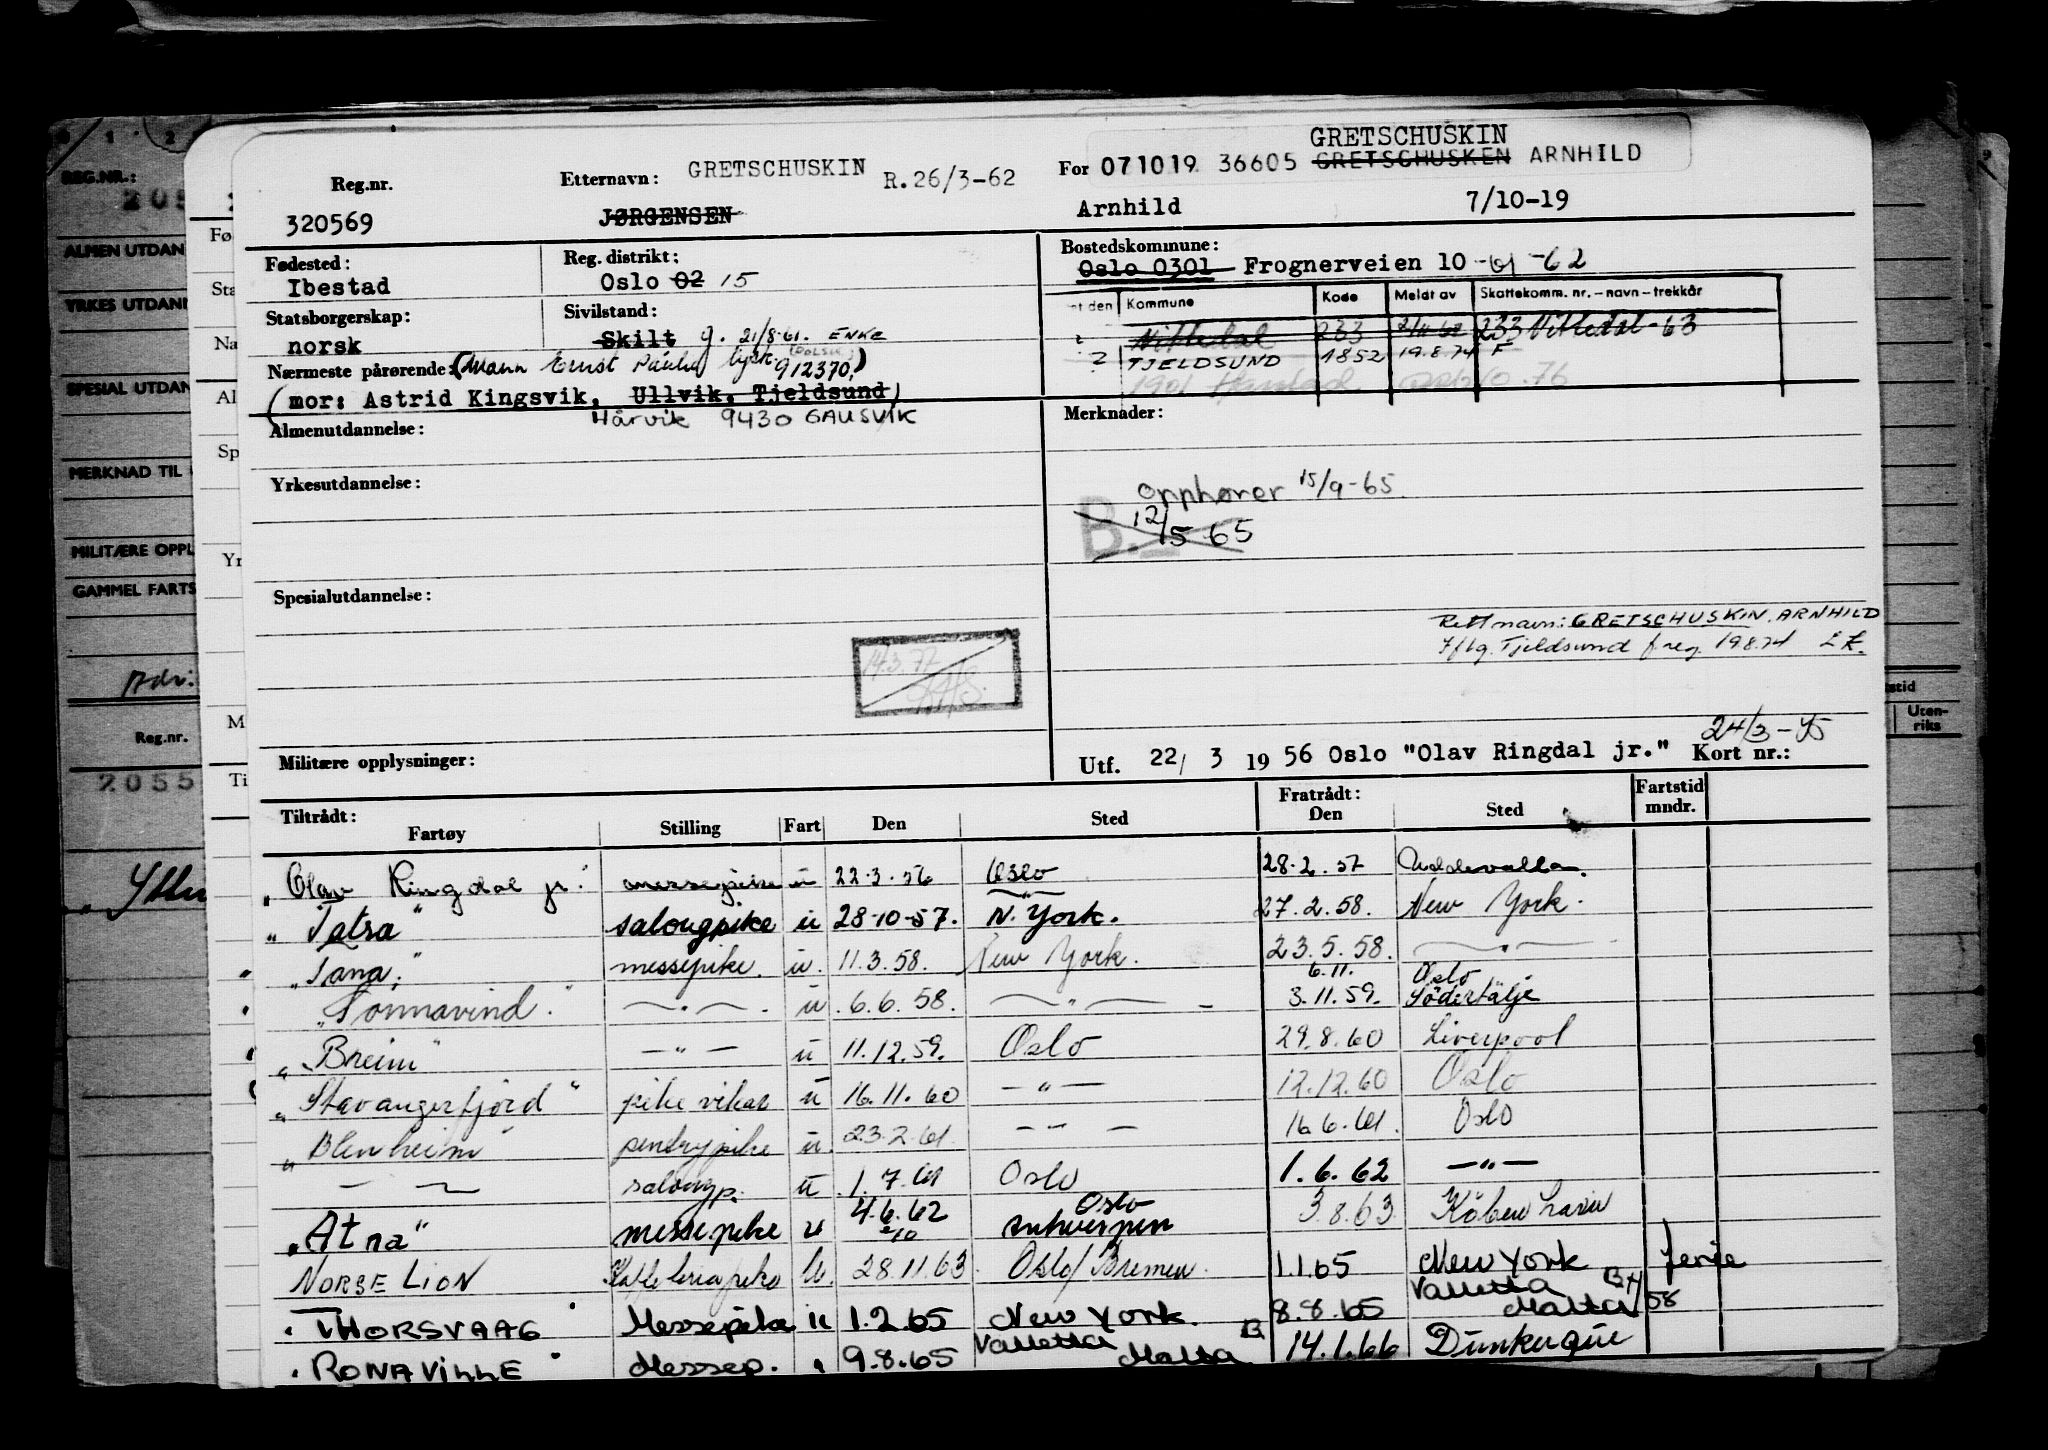 GRETSCHUSKIN
Reg.nr. Etternavn: GRETSCHUSKIN R.26/3-62 For 071019 36605 GRETSCHUSKEN ARNHILD
320569 JØRGENSEN Arnhild 7/10-19
Fødested: Reg. distrikt: Bostedskommune:
Ibestad Oslo 02 15 Oslo 0301 Frognerveien 10 -61 -62
Statsborgerskap: Sivilstand: nt den Kommune Kode Meldt av Skattekomm. nr. - navn - trekkår
norsk Skilt g. 21/8-61. ENKE Nittedal 233 233 Nittedal - 63
2 TJELDSUND 1852 19.8.74 F
Nærmeste pårørende: (Mann Ernst 912370.)
1901 Harstad 76
(mor: Astrid Kingsvik, Ullvik, Tjeldsund)
Hårvik 9430 GAUSVIK
Almenutdannelse: Merknader:
Yrkesutdannelse:
Opphører 15/9-65
B. 12/5 65
Spesialutdannelse:
Rett navn: GRETSCHUSKIN, ARNHILD
Iflg. Tjeldsund f.reg 19.8.74
14.3.77
24/3-75
Militære opplysninger: Utf. 22/ 3 19 56 Oslo "Olav Ringdal jr." Kort nr.:
Tiltrådt: Fratrådt: Fartstid
Fartøy Stilling Fart Den Sted Den Sted mndr.
"Olav Ringdal jr." messepike u 22.3.56 Oslo 28.2.57 Uddevalla.
"Tatra" salongpike u 28-10-57. N. York. 27.2.58. New York.
"Tana." messepike. u. 11.3.58. New York. 23.5.58. — " —
6.11. Oslo
"Sonnavind." — " — . u .6.6.58. — " — 3.11.59. Södertälje
"Breim" — " — u 11.12.59. Oslo 29.8.60 Liverpool
"Stavangerfjord" pike vikar u 16.11.60 — " — 12.12.60 Oslo
"Blenheim" pentrypike u. 23.2.61. — " — 16.6.61. Oslo
— " — salongp. u 1.7.61 Oslo 1.6.62 — " —
4.6.62 Oslo
"Atna" messepike u 2/10 Antwerpen 3.8.63. Köbenhavn
NORSE LION Kaffeteriapike U. 28.11.63. Oslo/Bremen. 1.1.65 New York ferie
"THORSVAAG" Messepike u 1.2.65 New York. 8.8.65 Valletta Malta B4/58
"RONAVILLE" Messep. " 9.8.65 Valletta Malta B 14.1.66 Dunkerque
REG.NR.:
205
ALMEN UTDAN
YRKES UTDANN
SPESIAL UTDAN
MERKNAD TIL
MILITÆRE OPPL
GAMMEL FARTS
Adr:
Reg.nr.
2055
Fø
Sta
Na
Al
Sp
Yr
M
Ti
stid
Uten-
riks